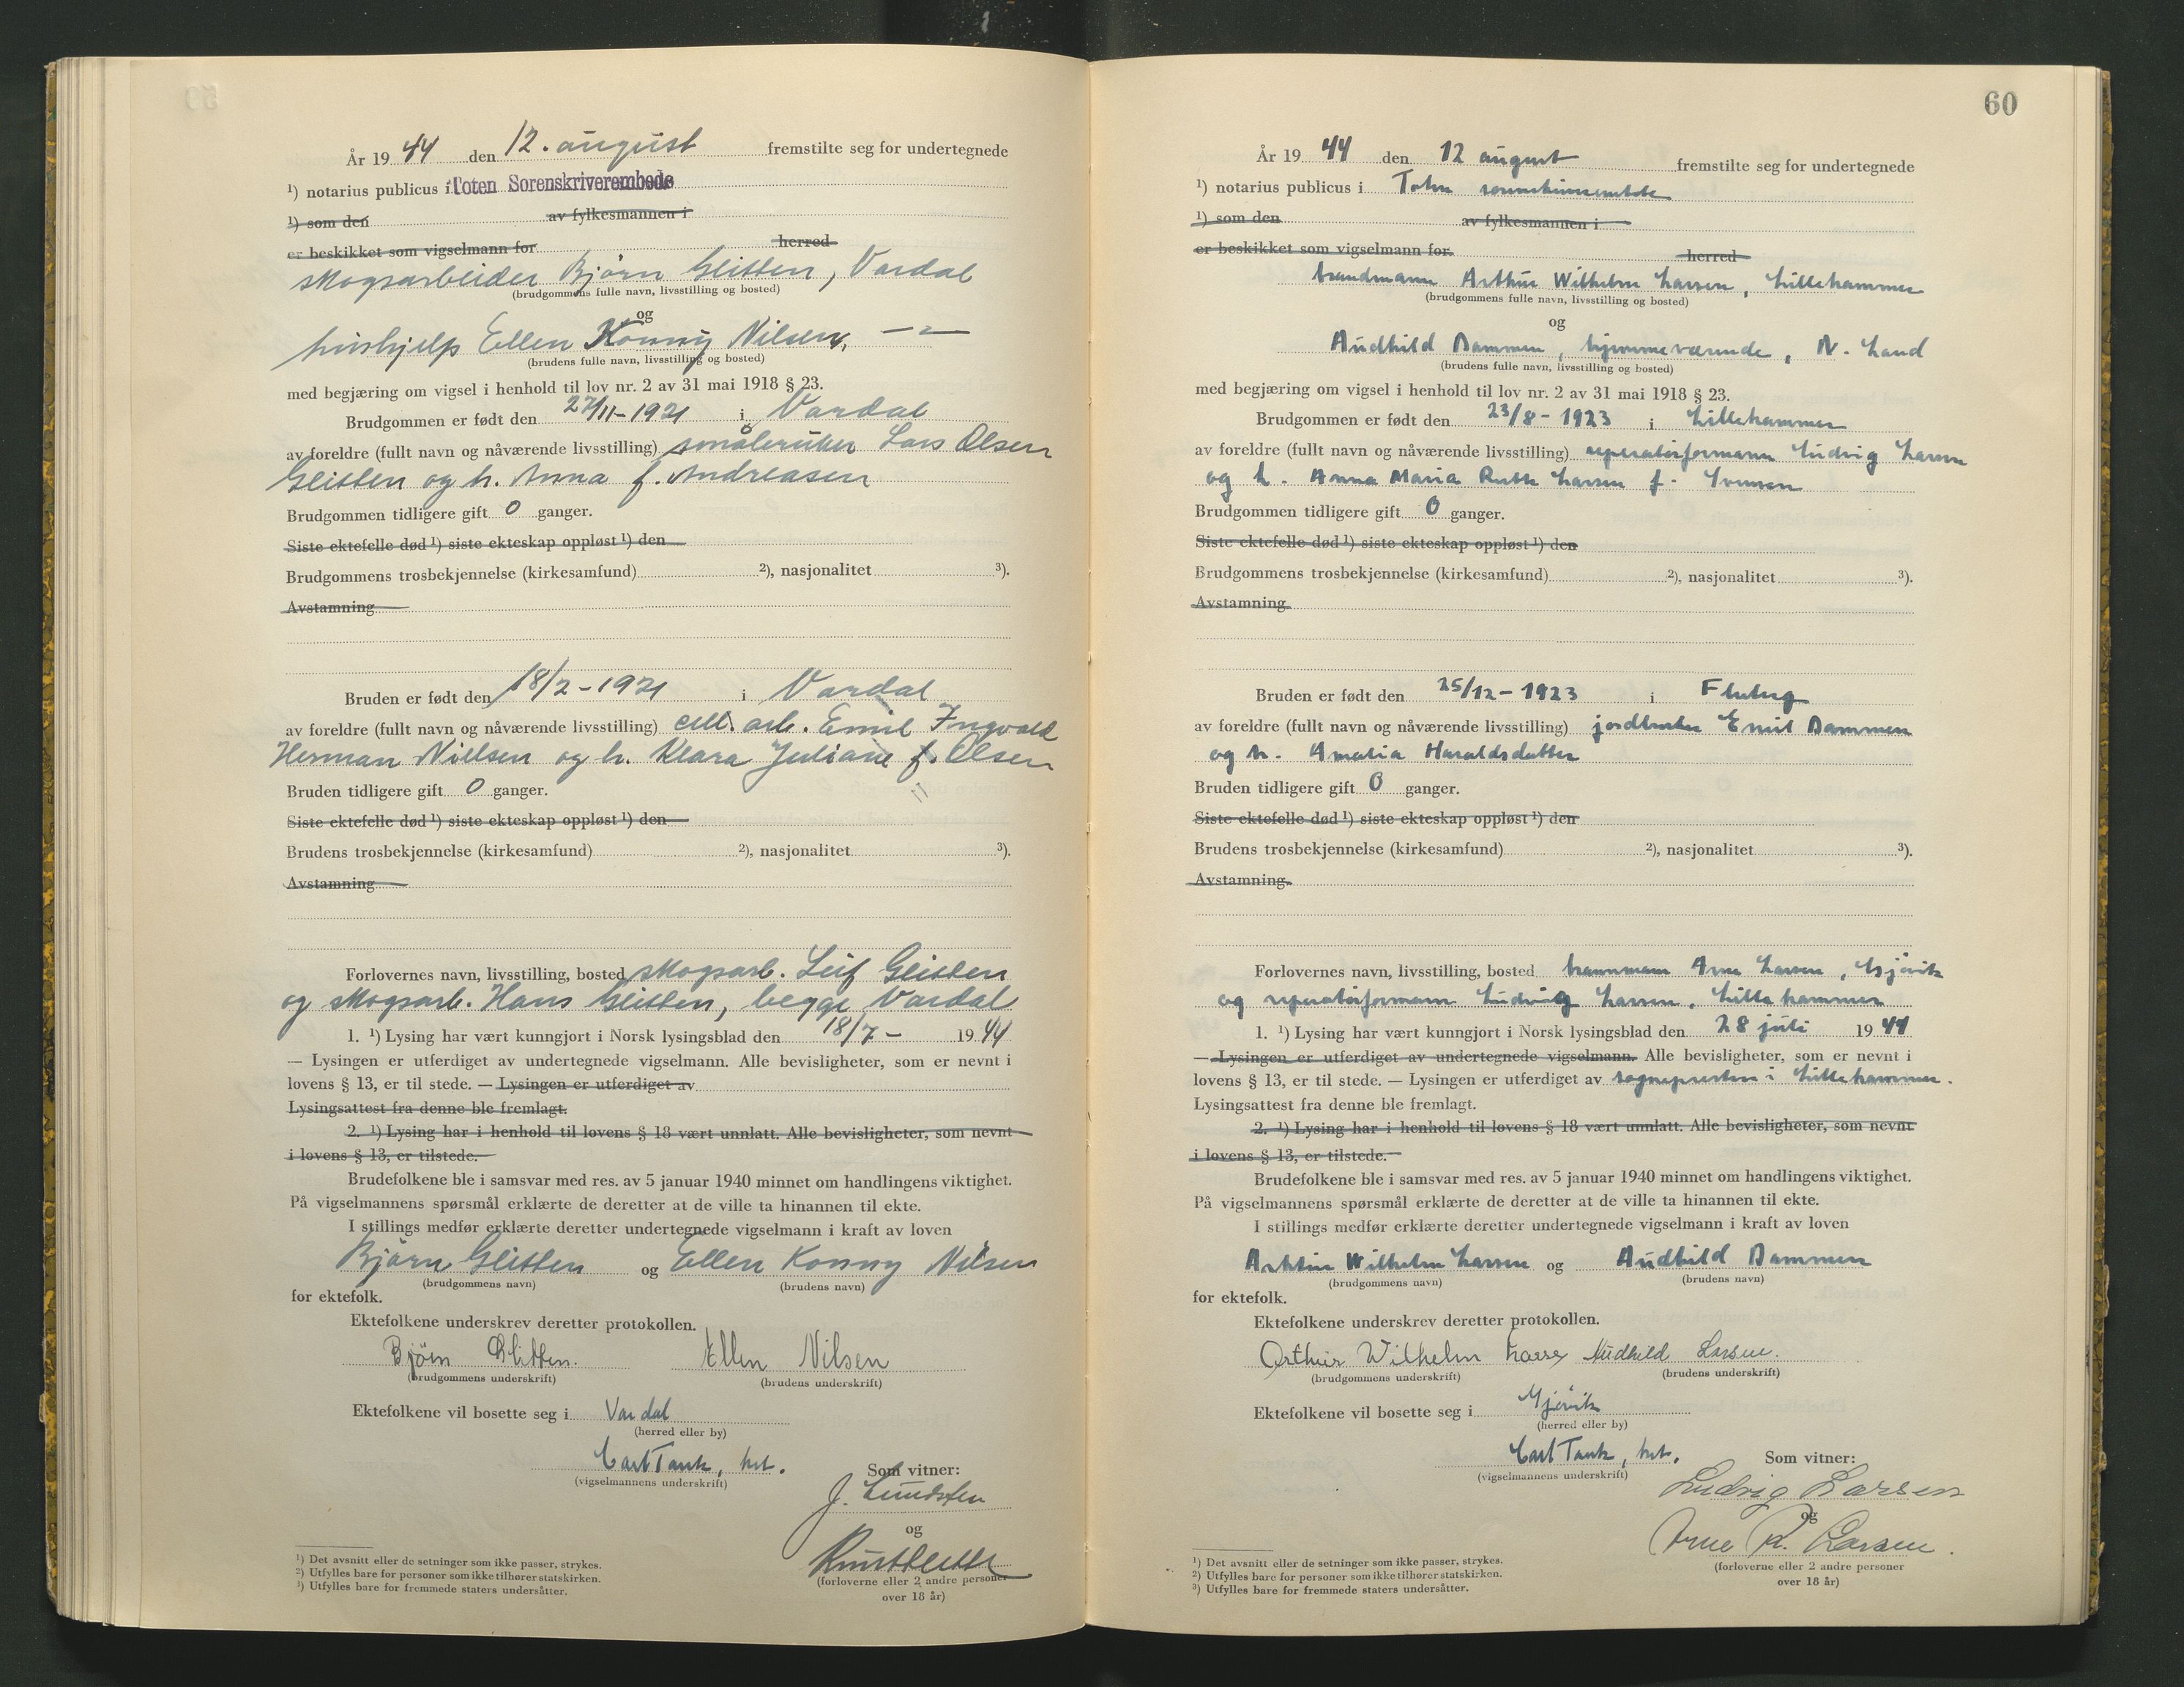 År 1944 den 12. august fremstilte seg for undertegnede
¹) notarius publicus i Toten Sorenskriverembede
¹) som den av fylkesmannen i
er beskikket som vigselmann for herred
skogsarbeider Bjørn Glitten, Vardal
(brudgommens fulle navn, livsstilling og bosted)
og
hushjelp Ellen Konny Nilsen, —"—
(brudens fulle navn, livsstilling og bosted)
med begjæring om vigsel i henhold til lov nr. 2 av 31 mai 1918 § 23.
Brudgommen er født den 27/11-1921 i Vardal
av foreldre (fullt navn og nåværende livsstilling) småbruker Lars Olsen
Glitten og h. Anna f. Andreasen
Brudgommen tidligere gift 0 ganger.
Siste ektefelle død ¹) siste ekteskap oppløst ¹) den
Brudgommens trosbekjennelse (kirkesamfund) ²), nasjonalitet ³).
Avstamning
Bruden er født den 18/2-1921 i Vardal
av foreldre (fullt navn og nåværende livsstilling) cell. arb. Emil Ingvald
Herman Nilsen og h. Klara Juliane f. Olsen
Bruden tidligere gift 0 ganger.
Siste ektefelle død ¹) siste ekteskap oppløst ¹) den
Brudens trosbekjennelse (kirkesamfund) ²), nasjonalitet ³).
Avstamning
Forlovernes navn, livsstilling, bosted skogsarb. Leif Glitten
og skogsarb. Hans Glitten, begge Vardal
1. ¹) Lysing har vært kunngjort i Norsk lysingsblad den 18/7- 1944
— Lysingen er utferdiget av undertegnede vigselmann. Alle bevisligheter, som er nevnt i
lovens § 13, er til stede. — Lysingen er utferdiget av
Lysingsattest fra denne ble fremlagt.
2. ¹) Lysing har i henhold til lovens § 18 vært unnlatt. Alle bevisligheter, som nevnt
i lovens § 13, er tilstede.
Brudefolkene ble i samsvar med res. av 5 januar 1940 minnet om handlingens viktighet.
På vigselmannens spørsmål erklærte de deretter at de ville ta hinannen til ekte.
I stillings medfør erklærte deretter undertegnede vigselmann i kraft av loven
Bjørn Glitten og Ellen Konny Nilsen
(brudgommens navn) (brudens navn)
for ektefolk.
Ektefolkene underskrev deretter protokollen.
Bjørn Glitten. Ellen Nilsen
(brudgommens underskrift) (brudens underskrift)
Ektefolkene vil bosette seg i Vardal
(herred eller by)
Carl Tank, kst.
(vigselmannens underskrift)
Som vitner:
J. Lundsten
og
(forloverne eller 2 andre personer
over 18 år)
¹) Det avsnitt eller de setninger som ikke passer, strykes.
²) Utfylles bare for personer som ikke tilhører statskirken.
³) Utfylles bare for fremmede staters undersåtter.
60
År 1944 den 12 august fremstilte seg for undertegnede
¹) notarius publicus i Toten sorenskriverembede
¹) som den av fylkesmannen i
er beskikket som vigselmann for herred
Arthur Wilhelm Larsen, Lillehammer
(brudgommens fulle navn, livsstilling og bosted)
og
Audhild Dammen, hjemmeværende, N. Land
(brudens fulle navn, livsstilling og bosted)
med begjæring om vigsel i henhold til lov nr. 2 av 31 mai 1918 § 23.
Brudgommen er født den 23/8-1923 i Lillehammer
av foreldre (fullt navn og nåværende livsstilling) reperatørformann Ludvig Larsen
og h. Anna Maria Ruth Larsen f. Svensen
Brudgommen tidligere gift 0 ganger.
Siste ektefelle død ¹) siste ekteskap oppløst ¹) den
Brudgommens trosbekjennelse (kirkesamfund) ²), nasjonalitet ³).
Avstamning
Bruden er født den 25/12-1923 i Fluberg
av foreldre (fullt navn og nåværende livsstilling) jordbruker Emil Dammen
og h. Amalia Haraldsdatter
Bruden tidligere gift 0 ganger.
Siste ektefelle død ¹) siste ekteskap oppløst ¹) den
Brudens trosbekjennelse (kirkesamfund) ²), nasjonalitet ³).
Avstamning
Forlovernes navn, livsstilling, bosted Arne Larsen, Gjøvik
og reperatørformann Ludvig Larsen, Lillehammer
1. ¹) Lysing har vært kunngjort i Norsk lysingsblad den 28 juli 1944
— Lysingen er utferdiget av undertegnede vigselmann. Alle bevisligheter, som er nevnt i
lovens § 13, er til stede. — Lysingen er utferdiget av sognepresten i Lillehammer.
Lysingsattest fra denne ble fremlagt.
2. ¹) Lysing har i henhold til lovens § 18 vært unnlatt. Alle bevisligheter, som nevnt
i lovens § 13, er tilstede.
Brudefolkene ble i samsvar med res. av 5 januar 1940 minnet om handlingens viktighet.
På vigselmannens spørsmål erklærte de deretter at de ville ta hinannen til ekte.
I stillings medfør erklærte deretter undertegnede vigselmann i kraft av loven
Arthur Wilhelm Larsen og Audhild Dammen
(brudgommens navn) (brudens navn)
for ektefolk.
Ektefolkene underskrev deretter protokollen.
Arthur Wilhelm Larsen Audhild Larsen.
(brudgommens underskrift) (brudens underskrift)
Ektefolkene vil bosette seg i Gjøvik
(herred eller by)
Carl Tank, kst.
(vigselmannens underskrift)
Som vitner:
Ludvig Larsen
og
Arne R. Larsen.
(forloverne eller 2 andre personer
over 18 år)
¹) Det avsnitt eller de setninger som ikke passer, strykes.
²) Utfylles bare for personer som ikke tilhører statskirken.
³) Utfylles bare for fremmede staters undersåtter.